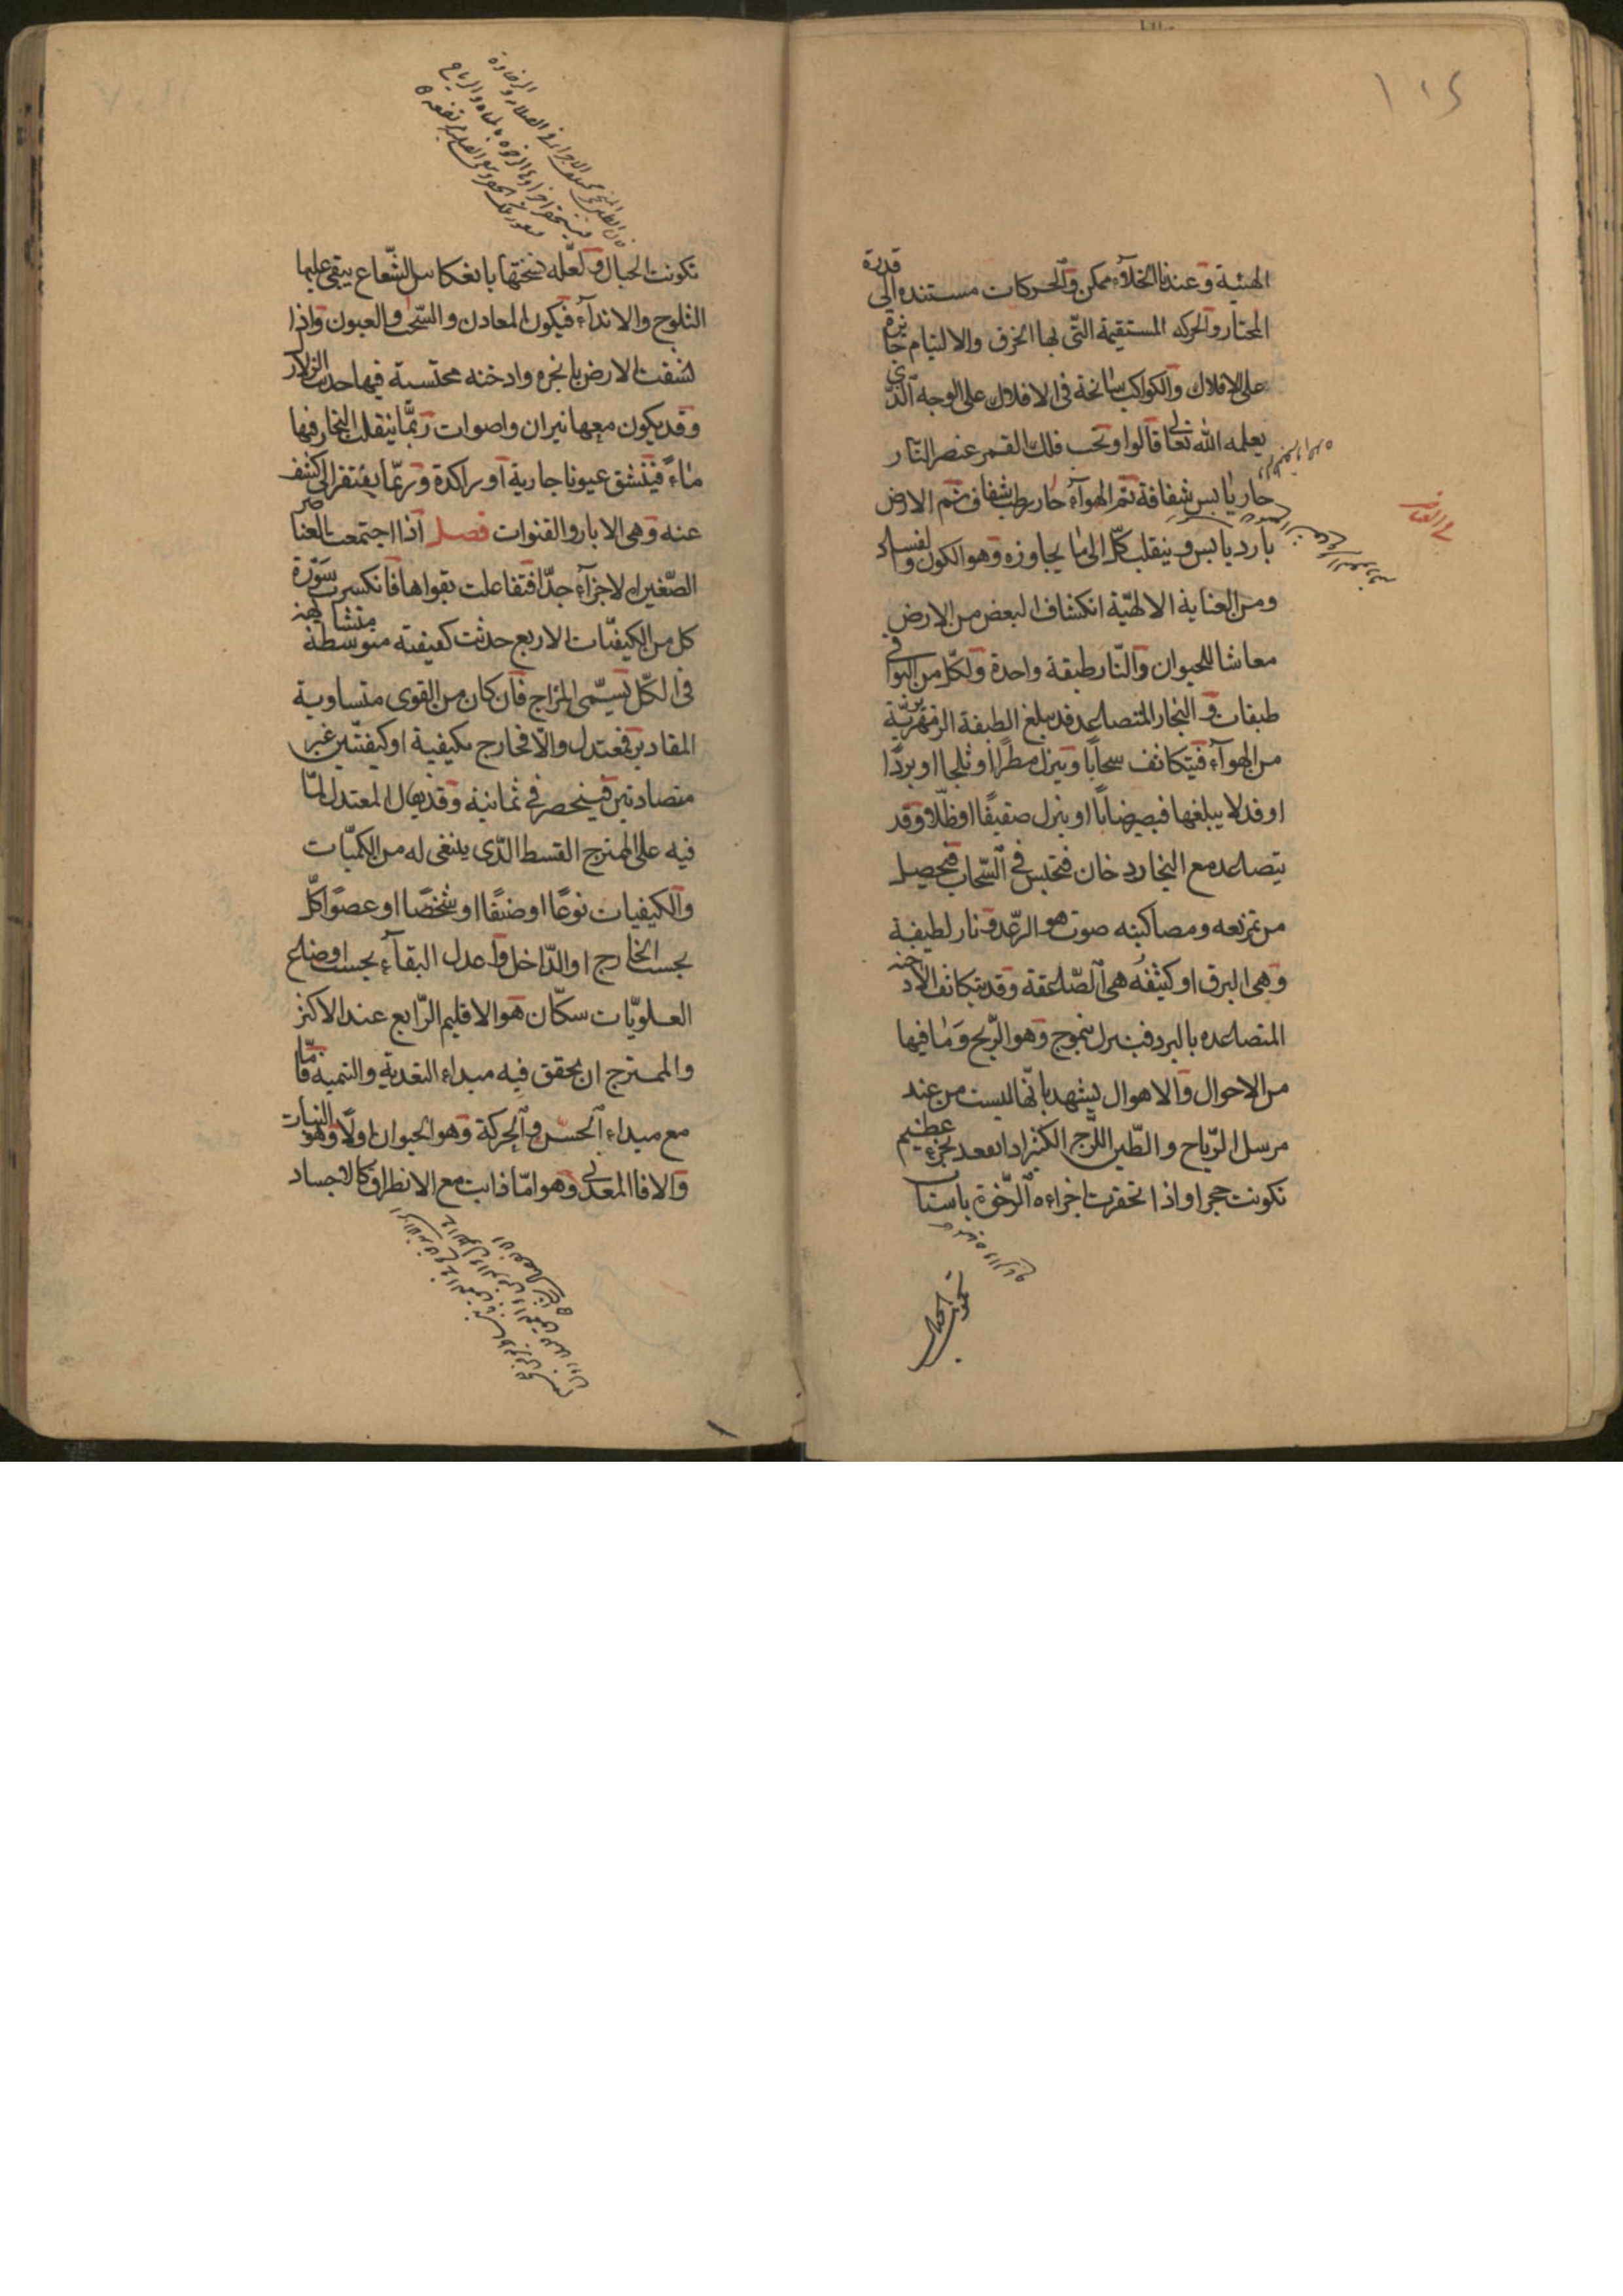 ١٠٤
الهيئية وعندنا الخلآء ممكن والحركات مستنده الى قدرة
المختار والحركه المستقيمة التّى بها الخرق والالتيام جايزة
على الافلاك والكواكب سابحة فى الافلاك على الوجه الّذى
يعلمه الله تعالى قالوا وتحت فلك القمر عنصر النّار
حار يابس شفافة ثم الهوآء حار رطب شفاف ثم الارض
بارد يابس وينقلب كلّ الى ما يجاوره وهو الكون والفساد
ومن العناية الالهيّة انكشاف البعض من الارض
معاشا للحيوان والنّار طبقة واحدة ولكلّ من البواقى
طبقات والبخار المتصاعد قد يبلغ الطبقة الزمهريريّة
من الهوآء فيتكاثف سحابًا وينزل مطرًا او ثلجا او بردًا
او قد لا يبلغها فيصير ضبابًا او ينزل صقيعًا او طلًّا وقد
يتصاعد مع البخار دخان فيحتبس فى السّحاب فيحصل
من تمزيقه ومصاكبته صوت هو الرّعد ونار لطيفة
وهى البرق او كثيفة هى الصّاعقة وقد يتكاثف الادخنه
المتصاعده بالبرد فينزل بتموج وهو الرّيح وما فيها
من الاحوال والاهوال يشهد بانّها ليست من عند
مرسل الرّياح والطّين اللّزج الكثير اذا انعقد بحرّ عظيم
تكونت حجرا واذا انحفرت اجزاءه الرّخوة باسباب
تكونت الجبال
تكونت الجبال ولعلّه لسخنتها بانعكاس الشّعاع يبقى عليها
الثلوج والاندآء فيكون المعادن والسّحب والعيون واذا
انشقت الارض بابخره وادخنه محتبسة فيها حدث الزلازل
وقد يكون معها نيران واصوات ربّما ينقلب البخار فيها
مآءً فينشق عيونا جارية او راكدة وربّما يفتقر الى كشف
عنه وهى الابار والقنوات فصل اذا اجتمعت العناصر
الصّغيرة الاجزآء جدّا فتفاعلت بقواها فانكسرت سَوْرة
كل من الكيفيّات الاربع حدثت كيفيتة متوسطة متشابهة
فى الكلّ تسمّى المزاج فان كان من القوى متساوية
المقادير فمعتدل والّا فخارج بكيفية او كيفيّتين غير
متضادتين فينحصر فى ثمانية وقد يقال المعتدل لما
فيه على الممتزج القسط الذّى ينبغى له من الكميّات
والكيفيات نوعًا او صنفًا او شخصًا او عضوًا كلّ
بحسب الخارج او الدّاخل واعدل البقآء بحسب اوضاع
العلويّات سكّان هو الاقليم الرّابع عند الاكثر
والممتزج ان يحقق فيه مبداء التغدية والتنمية فامّا
مع مبداء الحسّ والحركة وهو الحيوان اولًا وهو النبات
والا فالمعدنى وهو امّا ذايب مع الانطراق كالاجساد